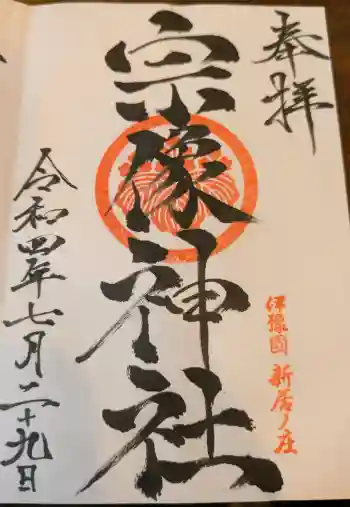 奉拝
伊豫國 新居ノ庄
宗像神社
令和四年七月二十九日